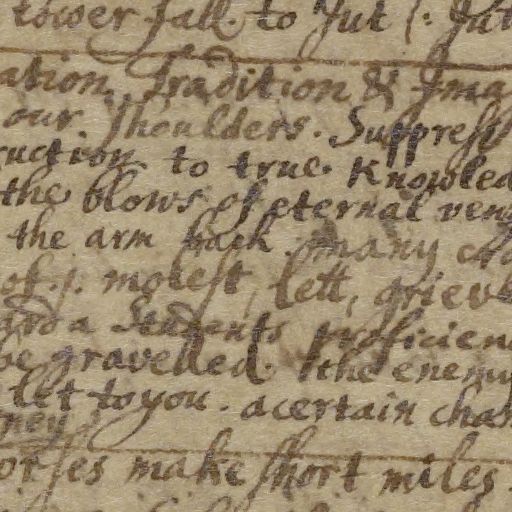 tower fall. to Jut
ation Tradition & Ima
our shoulders. Suppress
uction to true. Knowled
the blows of eternal ven
the arm back. many
of. j. molest, lett, griev
ard a Students proficien
be gravelled. the enemy
let to you. a certain chas
ney
orses make short miles.